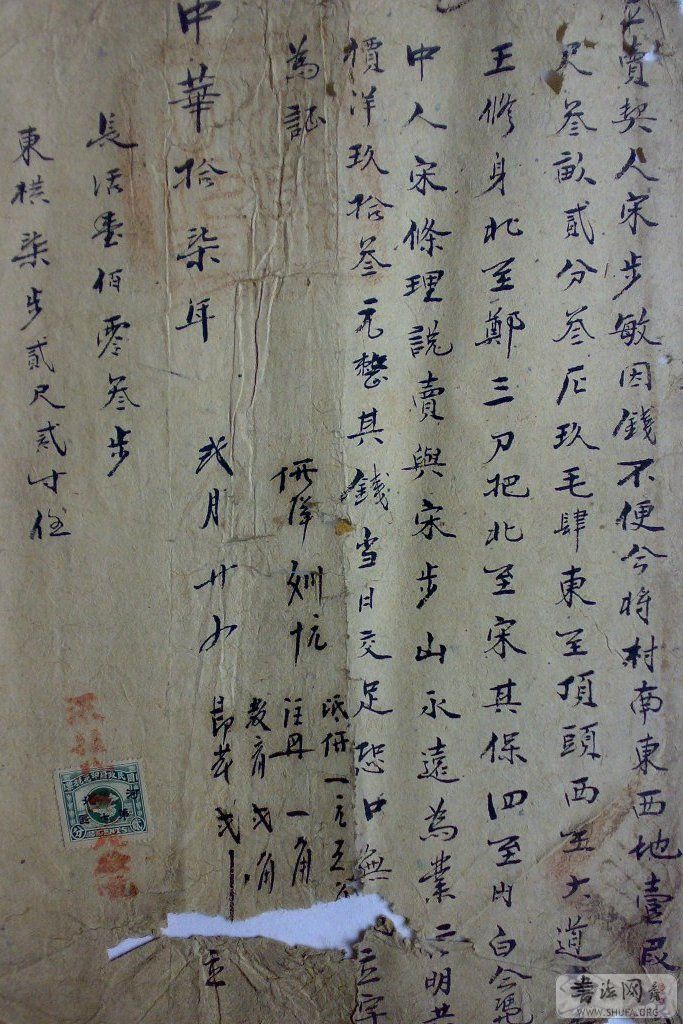 賣契人宋步敏因錢不便今將村南東西地壹段
尺叁畝貳分叁厘玖毛肆東至頂頭西至大道
王修身北至鄭三刀把北至宋其保四至內白
中人宋條理說賣與宋步山永遠為業言明共
價洋玖拾叁元整其錢當日交足恐口無 立字
為証
中華拾柒年
弍月廿
一角
教育弍角
立
長活壹佰零叁步
東橫柒步貳尺貳寸
書法网
WWW.SHUFA.ORG